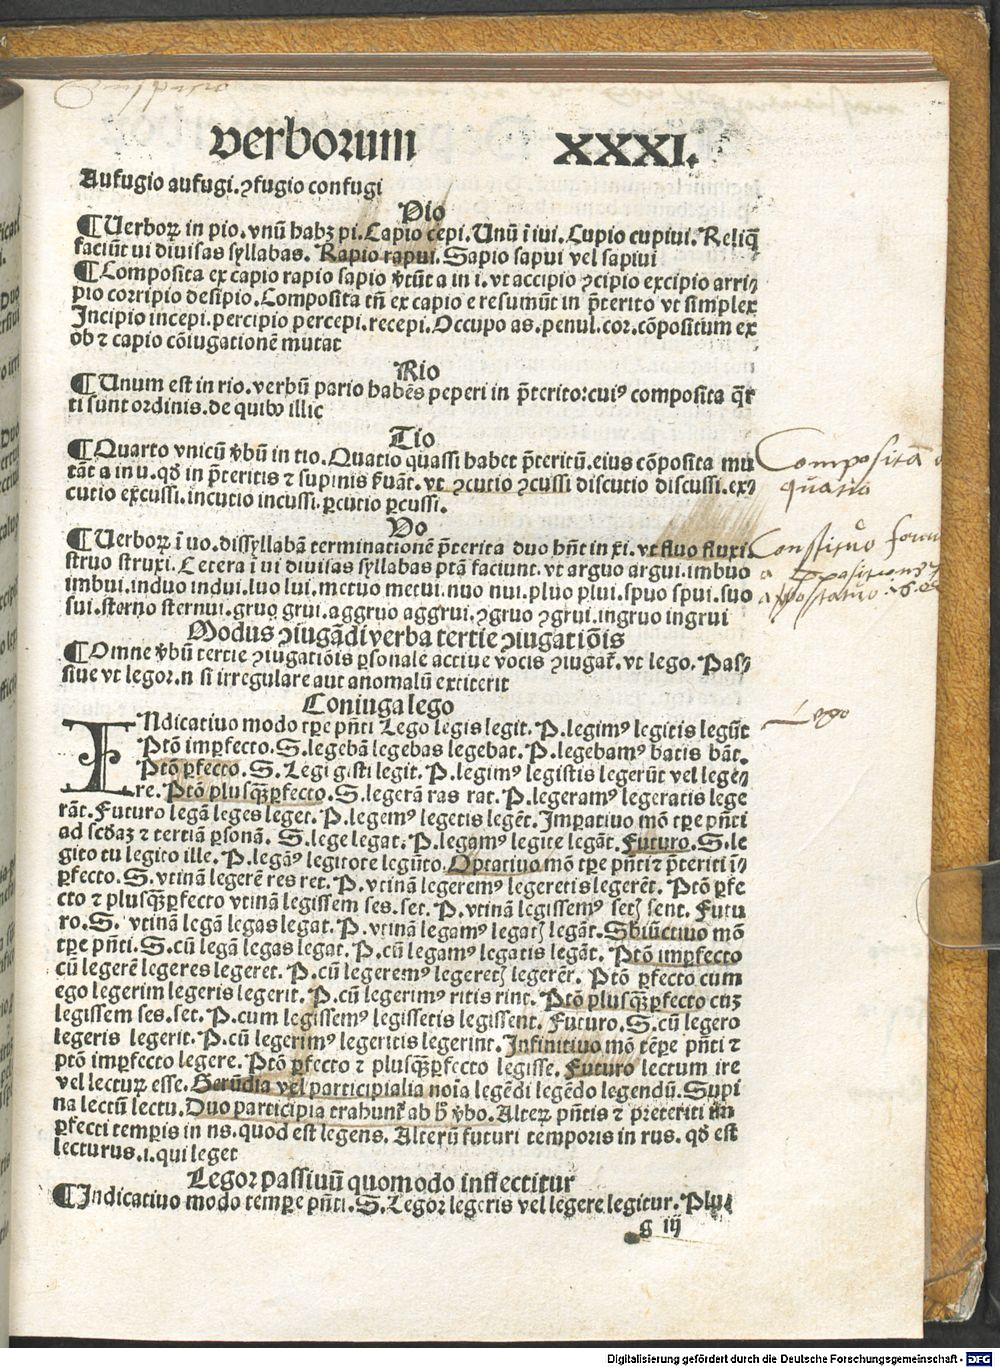 verborum XXXI.
Aufugio aufugi.ꝯfugio confugi
Pio
¶Verboꝝ in pio.vnū habꝫ pi.Capio cepi.Unū ī iui.Cupio cupiui.Reliq̄
faciūt ui diuisas syllabas. Rapio rapui.Sapio sapui vel sapiui
¶Composita ex capio rapio sapio v̄tūt a in i.vt accipio ꝯcipio excipio arri⸗
pio corripio desipio.Composita tn̄ ex capio e resumūt in p̄terito vt simplex
Incipio incepi.percipio percepi.recepi.Occupo as.penul.cor.cōpositum ex
ob ⁊ capio cōiugationē mutat
Rio
¶Unum est in rio.verbū pario habēs peperi in p̄terito:cuiꝰ composita q̄r
ti sunt ordinis.de quibꝰ illic
Tio
¶Quarto vnicū v̄bū in tio.Quatio quassi habet p̄teritū.eius cōposita mu
tāt a in u.qd̄ in p̄teritis ⁊ supinis ẜuāt.vt ꝯcutio ꝯcussi discutio discussi.ex⸗
cutio excussi.incutio incussi.ꝑcutio ꝑcussi.
Vo
¶Verboꝝ ī uo.dissyllabā terminationē p̄terita duo hn̄t in xi.vt fluo fluxi.
struo struxi.Cetera ī ui diuisas syllabas ptā faciunt.vt arguo argui.imbuo
imbui.induo indui.luo lui.metuo metui.nuo nui.pluo plui.spuo spui.suo
sui.sterno sternui.gruo grui.aggruo aggrui.ꝯgruo ꝯgrui.ingruo ingrui
Modus ꝯiugādi verba tertie ꝯiugatiōis
¶Omne v̄bū tertie ꝯiugatiōis ꝑsonale actiue vocis ꝯiugat̄.vt lego.Pas⸗
siue vt legor.n si irregulare aut anomalū extiterit
Coniuga lego
Indicatiuo modo tꝑe pn̄ti Lego legis legit.P.legimꝰ legitis legūt
Ptō imꝑfecto.S.legebā legebas legebat.P.legebamꝰ batis bāt.
Ptō ꝑfecto.S.Legi gisti legit.P.legimꝰ legistis legerūt vel lege⸗
re.Ptō plusq̄ꝑfecto.S.legerā ras rat.P.legeramꝰ legeratis lege
rāt.Futuro legā leges leget.P.legemꝰ legetis legēt.Imꝑatiuo mō tꝑe pn̄ti
ad scd̄aꝫ ⁊ tertiā ꝑsonā. S.lege legat.P.legamꝰ legite legāt.Futuro.S.le
gito tu legito ille.P.legāꝰ legitote legūto.Optatiuo mō tꝑe pn̄ti ⁊ p̄teriti ī⸗
ꝑfecto.S.vtinā legerē res ret.P.vtinā legeremꝰ legeretis legerēt.Ptō ꝑfe
cto ⁊ plusq̄ꝑfecto vtinā legissem ses.set.P.vtinā legissemꝰ setꝭ sent.Futu
ro.S. vtinā legā legas legat.P.vtinā legamꝰ legatꝭ legāt.Sbiūctiuo mō
tꝑe pn̄ti.S.cū legā legas legat.P.cū legamꝰ legatis legāt.Ptō imꝑfecto
cū legerē legeres legeret.P.cū legeremꝰ legeretꝭ legerēt. Ptō ꝑfecto cum
ego legerim legeris legerit.P.cū legerimꝰ ritis rint.Ptō plusq̄ꝑfecto cuꝫ
legissem ses.set.P.cum legissemꝰ legissetis legissent. Futuro.S.cū legero
legeris legerit.P.cū legerimꝰ legeritis legerint.Infinitiuo mō tēꝑe pn̄ti ⁊
ptō imꝑfecto legere.Ptō ꝑfecto ⁊ plusq̄ꝑfecto legisse.Futuro lectum ire
vel lecturꝫ esse.Gerūdia vel participialia noīa legēdi legēdo legendū.Supi
na lectū lectu.Duo participia trahunt̄ ab h̄ v̄bo.Alteꝝ pn̄tis ⁊ preteriti im
ꝑfecti tempꝛis in ns.quod est legens.Alterū futuri temporis in rus.qd̄ est
lecturus.i.qui leget
Legor passiuū quomodo inflectitur
¶Indicatiuo modo tempꝛe pn̄ti.S.Legor legeris vel legere legitur.Plu⸗
g iij
Composita
quatio
Constituo
Lego
Digitalisierung gefördert durch die Deutsche Forschungsgemeinschaft - DFG